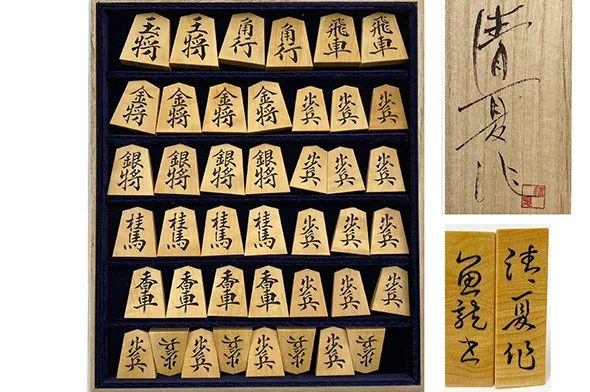 玉将 王将 角行 角行 飛車 飛車
金将 金将 金将 金将 歩兵 歩兵 歩兵
銀将 銀将 銀将 銀将 歩兵 歩兵 歩兵
桂馬 桂馬 桂馬 桂馬 歩兵 歩兵 歩兵
香車 香車 香車 香車 歩兵 歩兵 歩兵
歩兵 歩兵 歩兵 歩兵 歩兵 歩兵 歩兵 歩兵
清夏作
清夏作
魚龍書